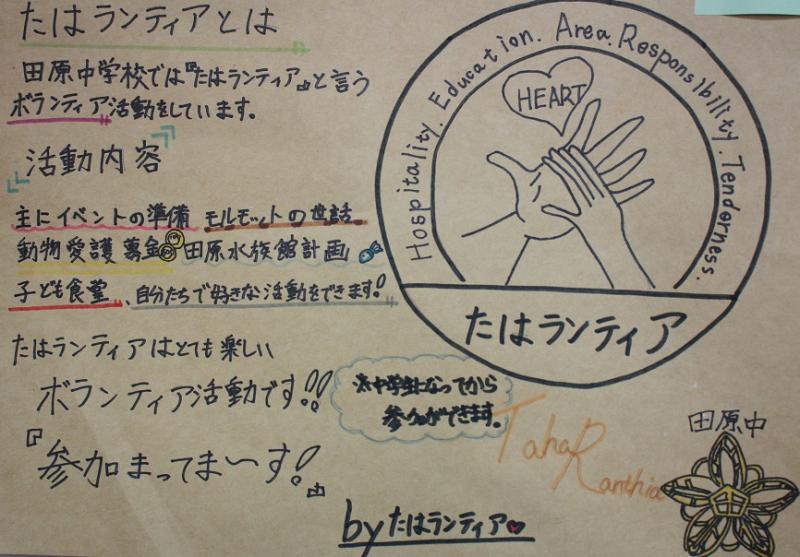 たはランティアとは
田原中学校では『たはランティア』と言う
ボランティア活動をしています。
活動内容
主にイベントの準備 モルモットの世話
動物愛護募金 田原水族館計画
子ども食堂、自分たちで好きな活動をできます!
たはランティアはとても楽しい
ボランティア活動です!!
『参加まってま〜す!』
※中学生になってから
参加ができます。
by たはランティア
Hospitality. Education. Area. Responsibility. Tenderness.
HEART
たはランティア
TahaRanthia
田原中